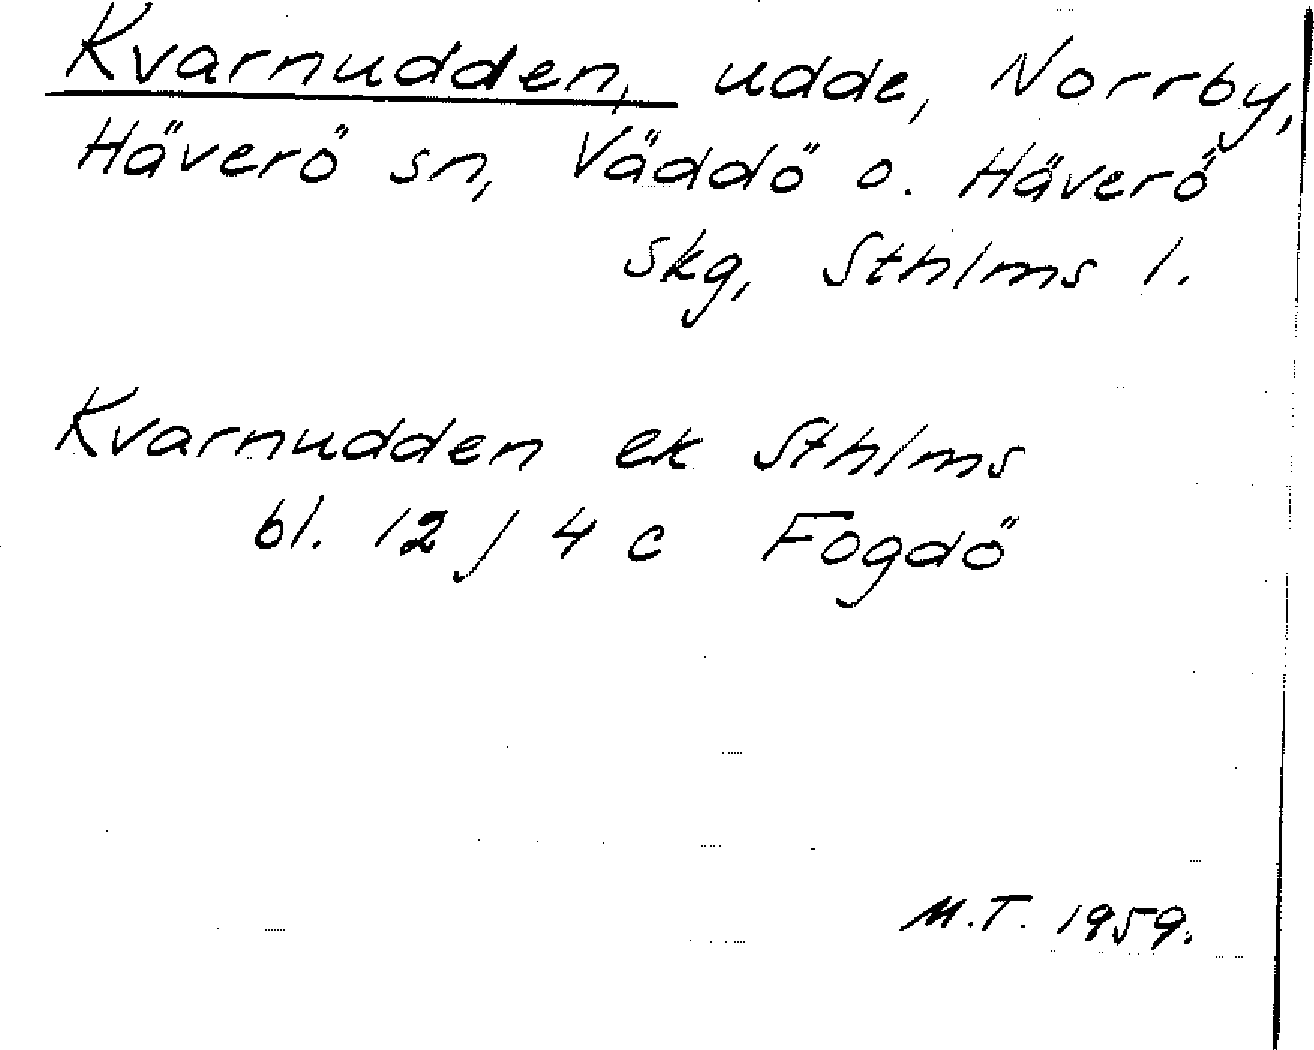 Kvarnudden, udde, Norrby,
Häverö sn, Väddö o. Häverö
skg, Sthlms l.
Kvarnudden ek Sthlms
bl. 12 j 4 c Fogdö
M.T. 1959.